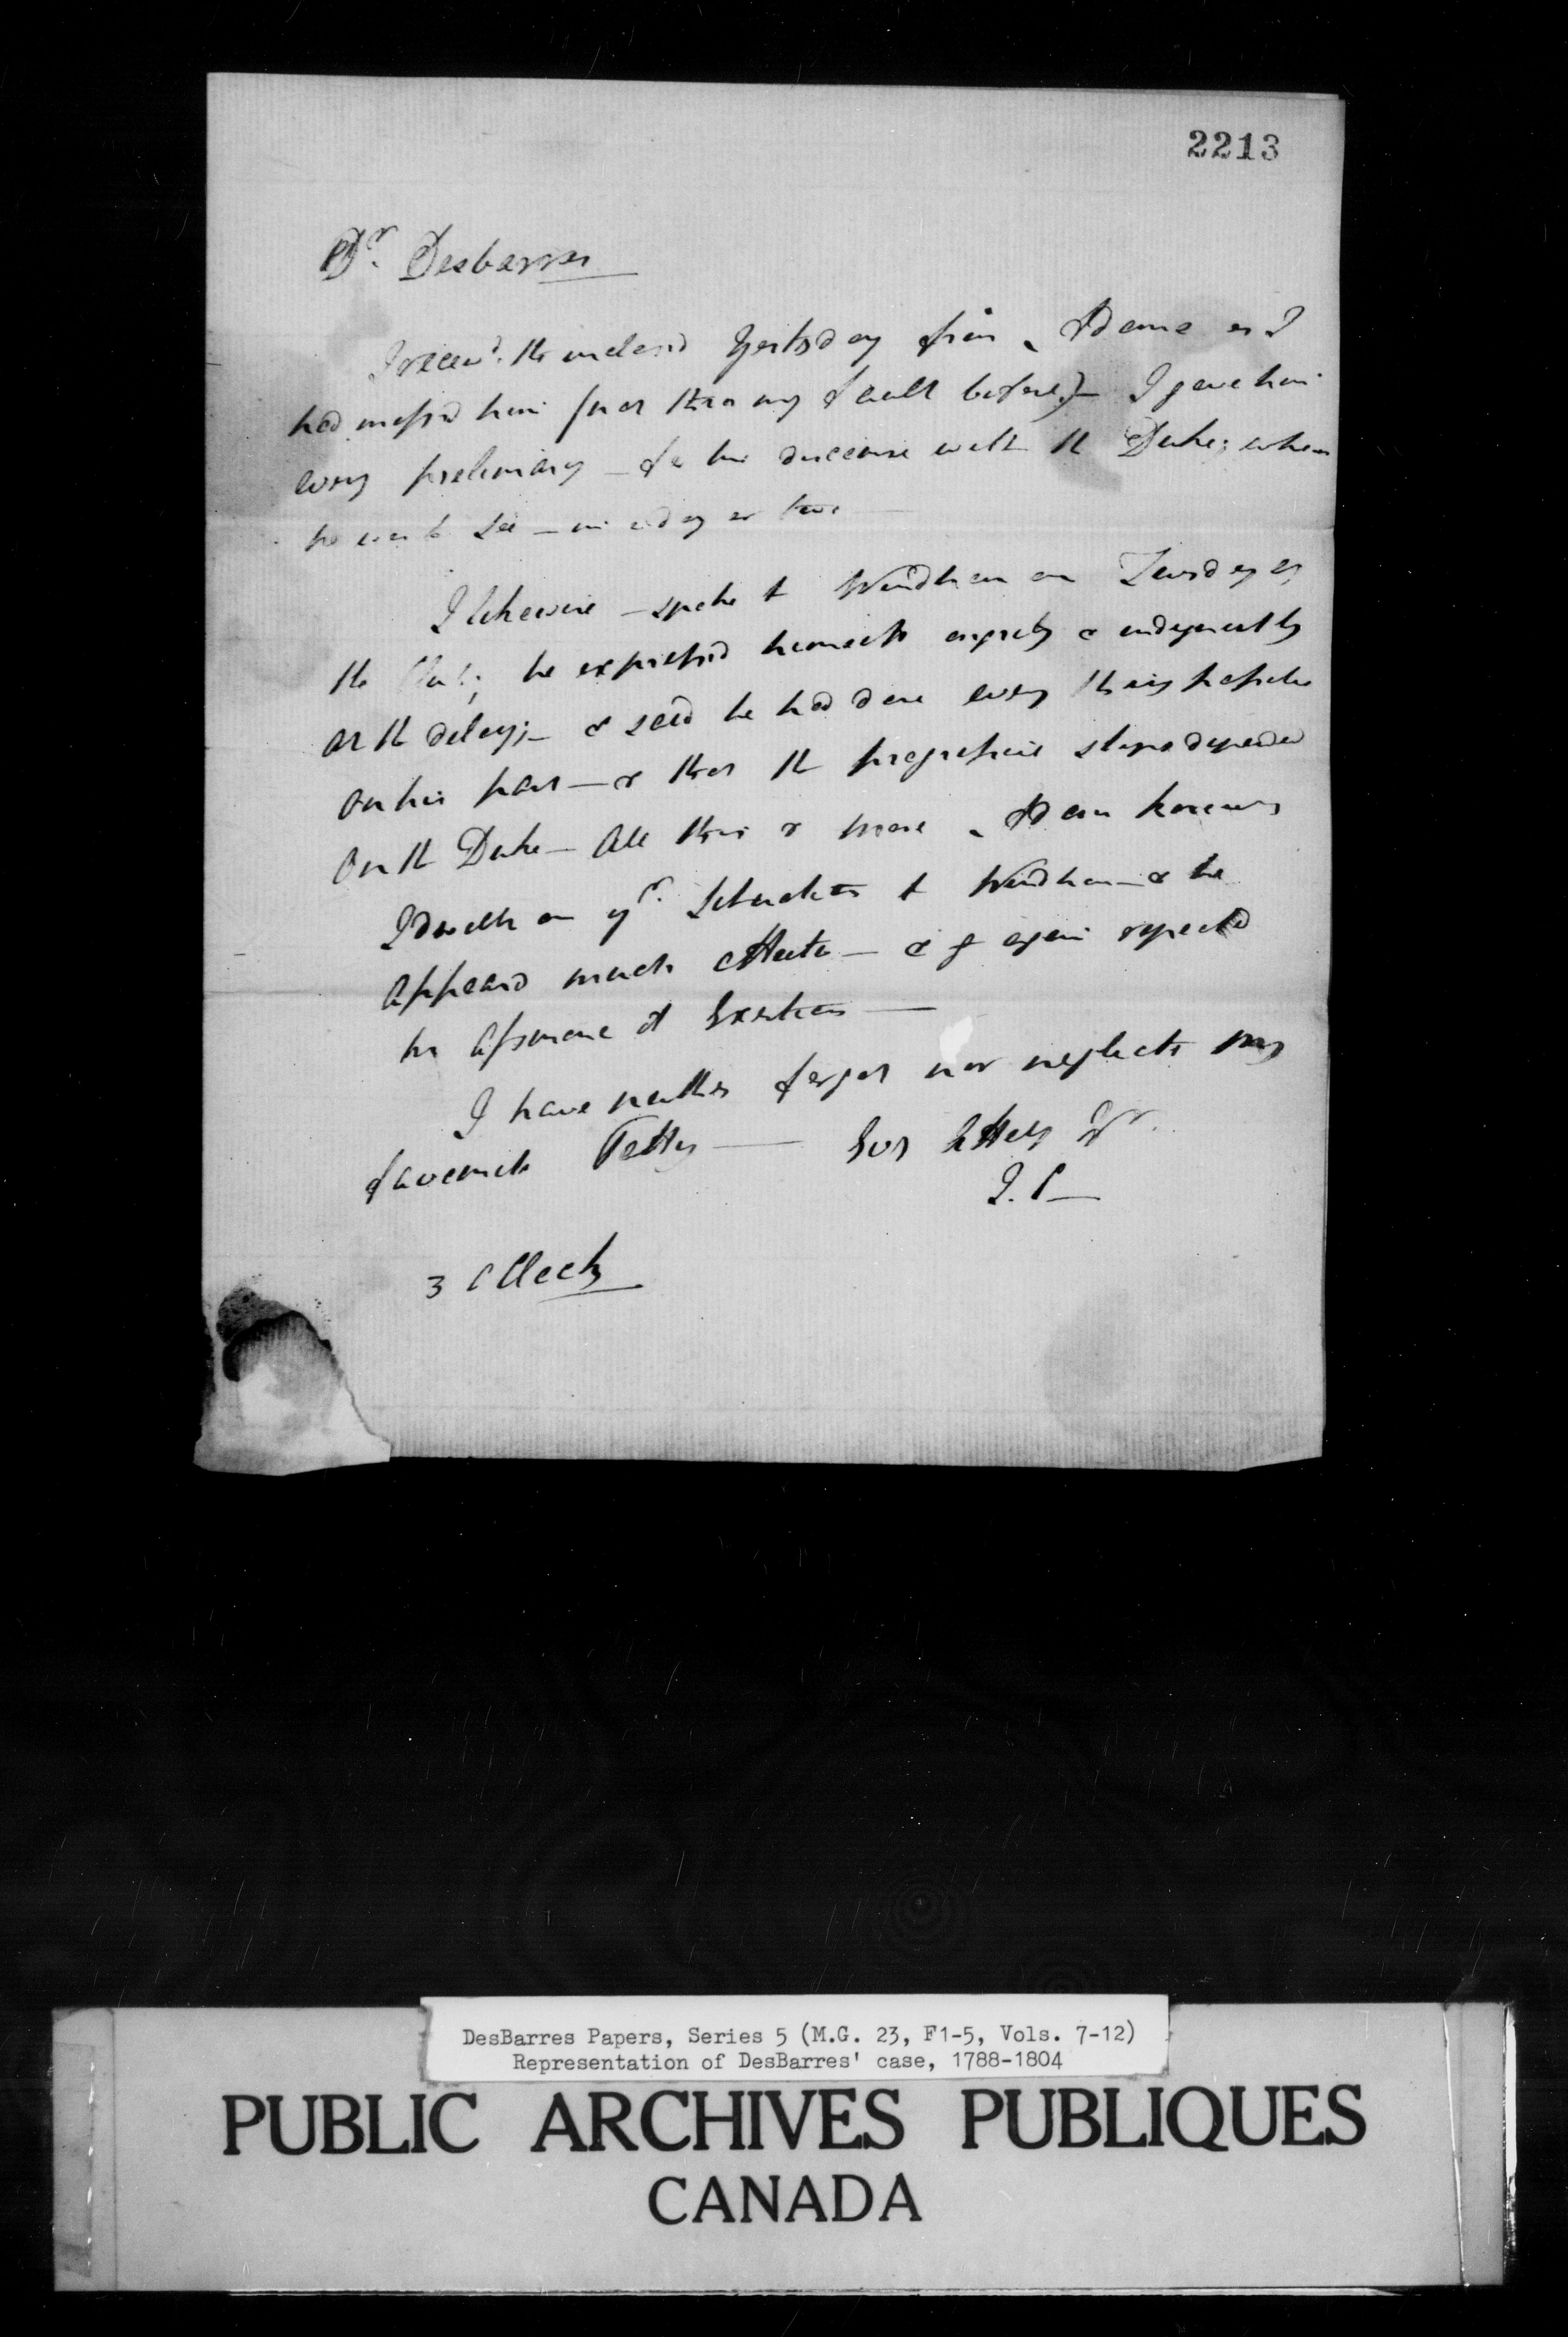 2213
Dr. Desbarres
I receivd. the inclosd Yesterday from Adam as I
had missd him (not thro my fault before) — I gave him
every preliminary — for his discourse with the Duke; whom
he was to see — in a day or two —
I likewise — spoke to Windham on Tuesday at
the Club; he expressd himself angrily & indignantly
at the delay; — & said he had done every thing possible
on his part — & that the progressive steps depended
on the Duke — All this & more Adam knows
I dwelt on yr. Situation to Windham — & he
appeard much affected — & again repeated
his assurance of Exertion —
I have neither forgot nor neglected my
favourite Patty — Evr
J. P—
3 oClock
DesBarres Papers, Series 5 (M.G. 23, F1-5, Vols. 7-12)
Representation of DesBarres' case, 1788-1804
PUBLIC ARCHIVES PUBLIQUES
CANADA